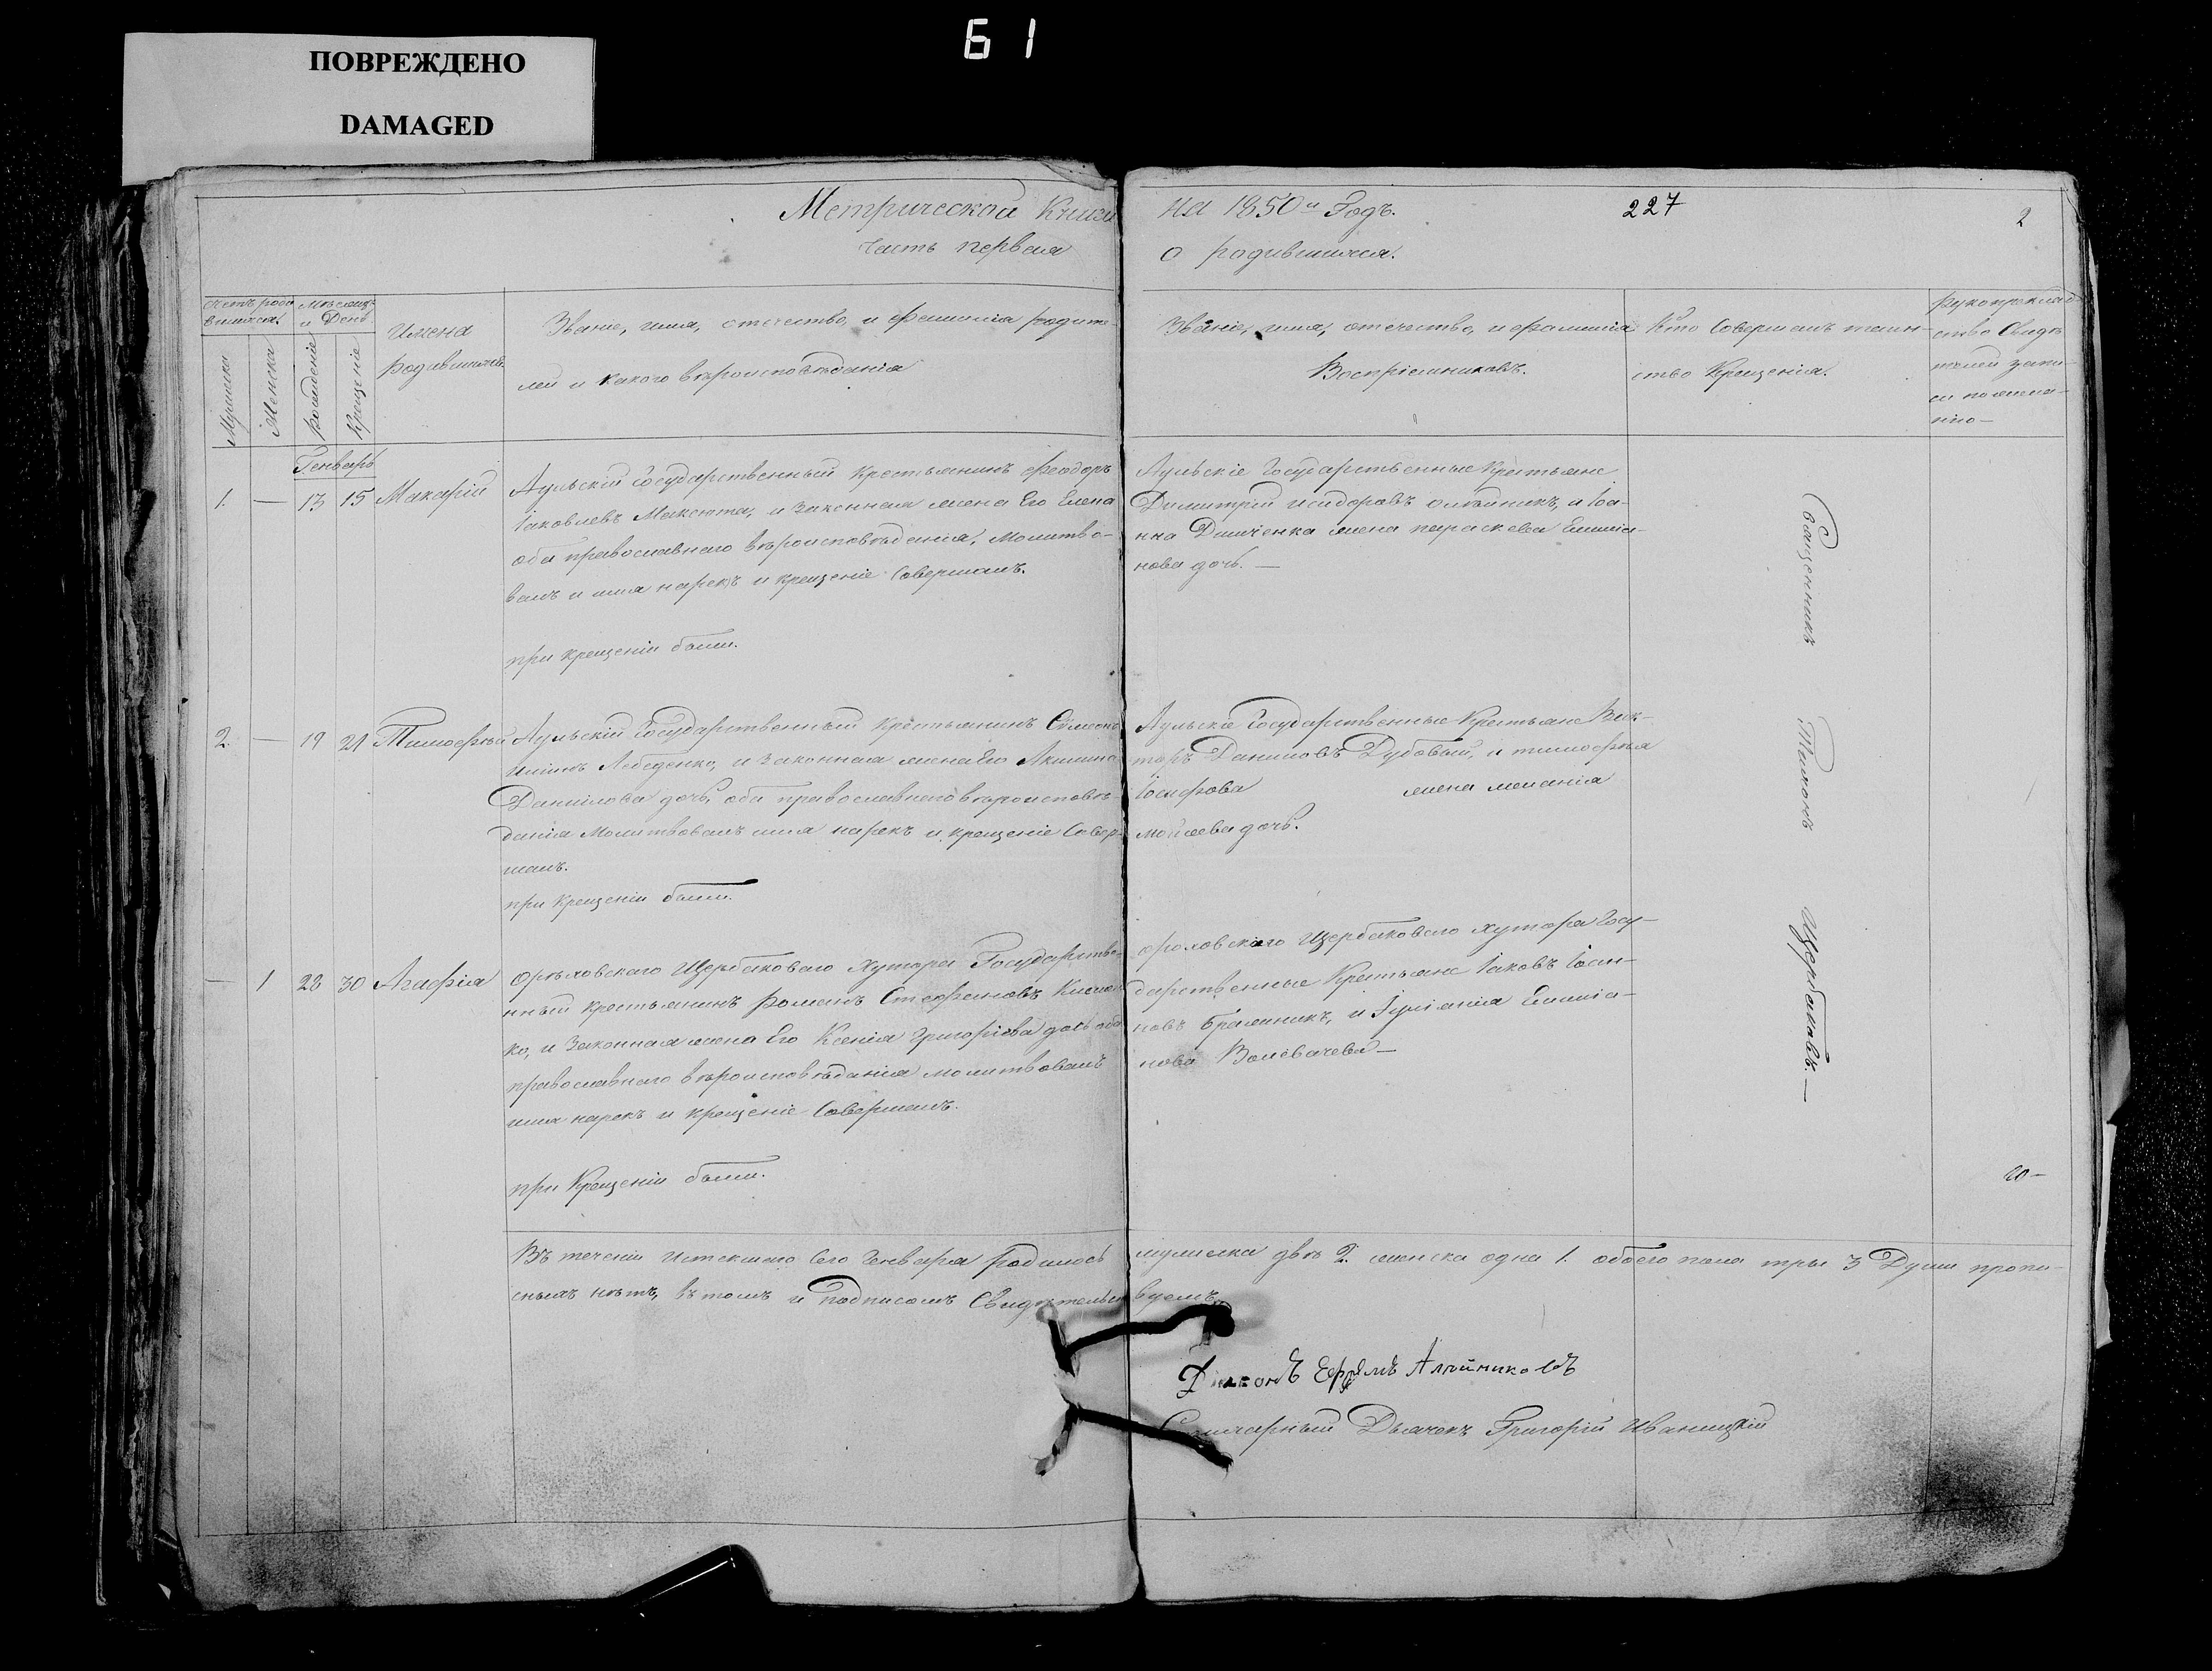 ПОВРЕЖДЕНО
DAMAGED
61
Метрической Книги на 1850й Годъ.
227
2
часть первая о родившихся.
счетъ роди
вшихся.
Мѣсяцъ
и День
Мужеска
Женска
рожденіе
Крещеніе
Имена
родившихся.
Званіе, имя, отечество, и фамилія родите-
лей и какого вѣроисповѣданія
Званіе, имя, отечество, и фамилія
Воспріемниковъ.
Кто Совершалъ таин-
ство Крещенія.
рукоприклад-
ство Свидѣ
телей запи-
си по жела-
нію-
Генварь
1. — 13 15 Макарій
Аульскій Государственный Крестьянинъ Феодоръ
Іаковлевъ Максюта, и законная жена Его Елена
оба православнаго вѣроисповѣданія, Молитво-
валъ и имя нарекъ и крещеніе Совершалъ.
при крещеніи были.
Аульскіе Государственные Крестьяне
Димитрій исидоровъ олѣйникъ, и Іоа-
нна Дмиченка жена параскева Емилія-
нова дочь. —
2. — 19 21 Тимофѣй
Аульскій Государственный Крестьянинъ Симеонъ
Лебеденко, и Законная жена Его Акилина
Даніилова дочь, оба православнаго вѣроисповѣ-
данія Молитвовалъ имя нарекъ и крещеніе Совер-
шалъ.
при крещеніи были.
Аульскіе Государственные Крестьяне Вик-
торъ Даниловъ Дубовый, и тимофея
Іосифова жена меланія
мойсеева дочь.
— 1 28 30 Агафія
орѣховскаго Щербаковаго Хутора Государстве-
нный крестьянинъ романъ Стефановъ
ко, и Законная жена Его Ксенія Григоріева дочь оба
православнаго вѣроисповѣданія молитвовалъ
имя нарекъ и крещеніе Совершалъ.
при Крещеніи были.
ореховскаго Щербаковаго хутора Госу-
дарственные Крестьяне Іаковъ Іоан-
новъ Бражникъ, и Іуліанія Емиліа-
нова Воловачева —
Священникъ Тимонъ Щербаковъ. —
Въ теченіи истекшаго Сего Генваря родилось мужеска двѣ 2. женска одна 1. обоего пола три 3 Души пропи-
сныхъ нѣтъ, въ томъ и Подписомъ Свидѣтельствуемъ.
Діаконъ Ефремъ Алейниковъ
Дьячекъ Григорій Иваницкій